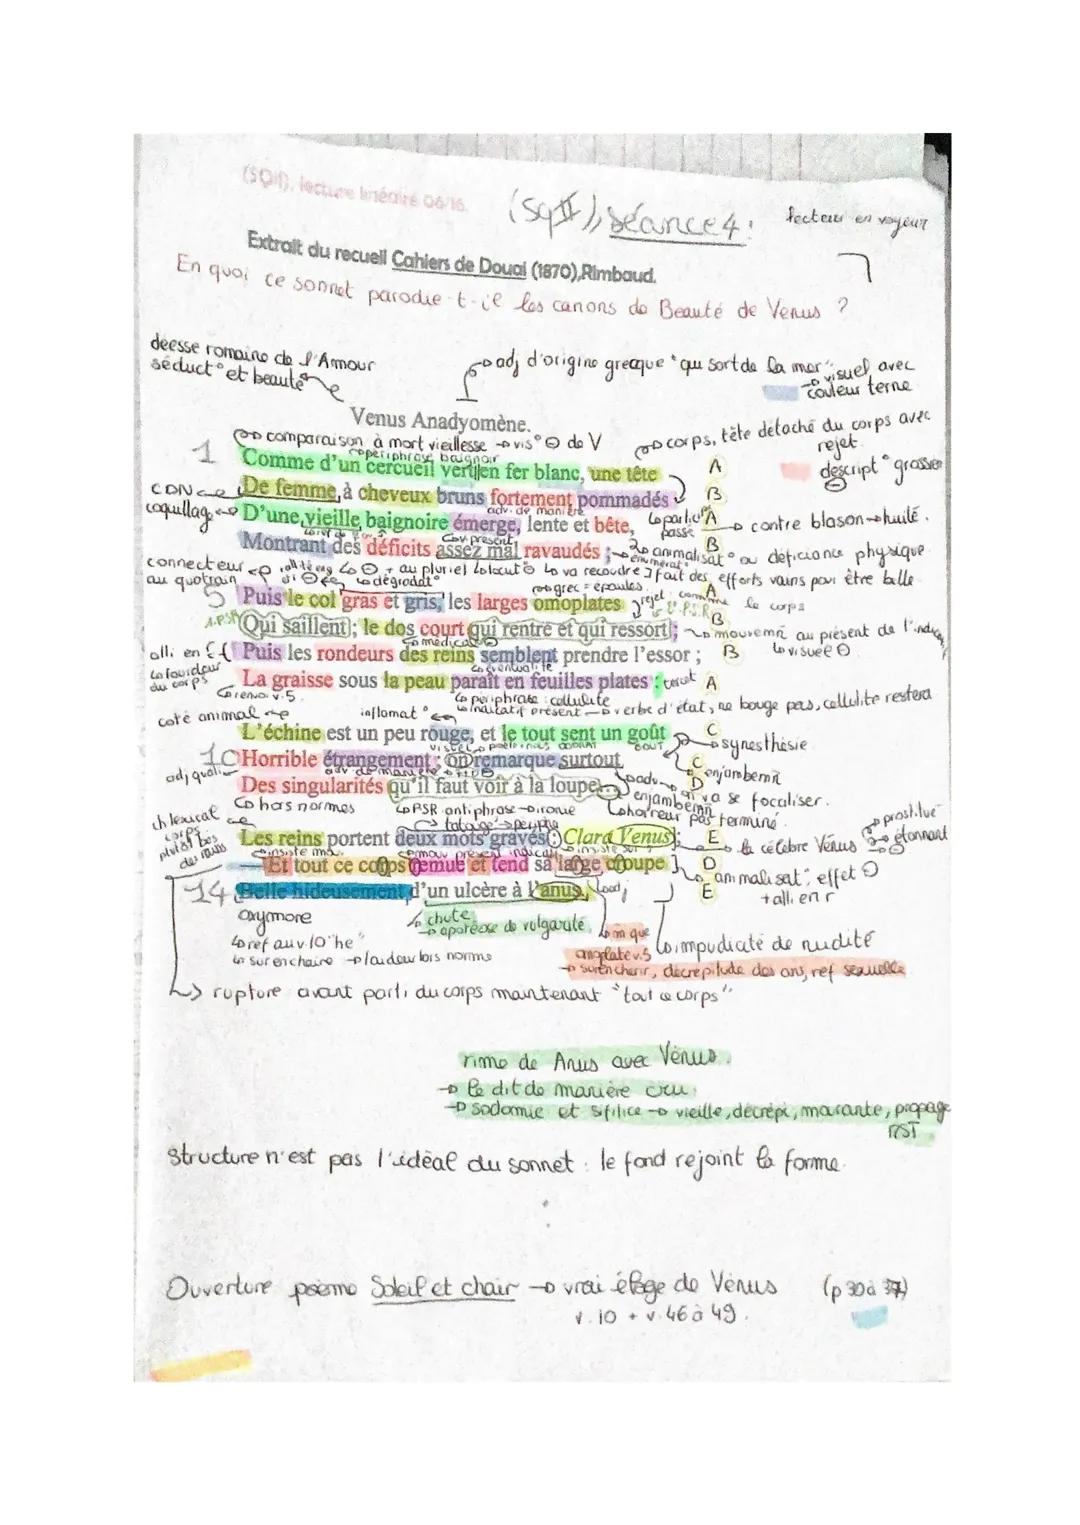 (SQII), lecture linéaire 06/16.
(SqII), séance 4:
lecteur en voyeur
Extrait du recueil Cahiers de Douai (1870), Rimbaud.
En quoi ce sonnet parodie-t-il les canons de Beauté de Venus ?
déesse romaine de l'Amour
séduct° et beauté
adj d'origine grecque "qui sort de la mer"
visuel avec
couleur terne
Venus Anadyomène.
comparaison à mort vieillesse → vis° ⊖ de V
corps, tête détaché du corps avec
rejet
periphrase baignoir
descript° grossier
1 Comme d'un cercueil vert en fer blanc, une tête A
CDN De femme à cheveux bruns fortement pommadés B
adv. de manière
coquillage D'une vieille baignoire émerge, lente et bête, A
particip passé
→ contre blason → huité.
v. présent
Montrant des déficits assez mal ravaudés ; B
animalisat° ou déficiance physique
énumérat°
connecteur
au quatrain
+ au pluriel
va recoudre
fait des efforts vains pour être belle
dégradat°
grec = épaules
5 Puis le col gras et gris, les larges omoplates A
rejet comme le corps
Qui saillent ; le dos court qui rentre et qui ressort ; B
mouvemn au présent de l'indica
visuel ⊖
médical
alli en
Puis les rondeurs des reins semblent prendre l'essor ; B
lourdeur
du corps
éventualité
La graisse sous la peau paraît en feuilles plates : A
renvoi v.5
periphrase : cellulite
indicatif présent → verbe d'état, ne bouge pas, cellulite restera
coté animal
inflamat°
L'échine est un peu rouge, et le tout sent un goût C
synesthésie
10 Horrible étrangement ; on remarque surtout C
enjambemn
adj quali
adv de manière
Des singularités qu'il faut voir à la loupe... D
enjambemn
va se focaliser.
hors normes
PSR antiphrase → ironie
horreur pas terminé.
ch lexical
corps
plutot bas
des reins
tatouge → periphr
Les reins portent deux mots gravés : Clara Venus ; E
la célèbre Vénus
prostitué
étonnant
— Et tout ce corps remue et tend sa large croupe D
animalisat°, effet ⊖
+ all. en r
14 Belle hideusement d'un ulcère à l'anus. E
oxymore
chute
apothéose de vulgarité
ref au v.10 "he"
surenchaire → laideur hors norme
v.5
impudicité de nudité
surenchérir, décrépitude des ans, ref sexuelle
rupture avant parti du corps maintenant "tout ce corps"
rime de Anus avec Vénus.
→ le dit de manière cru.
→ sodomie et sifilice → vieille, décrépi, mourante, propage
MST
Structure n'est pas l'idéal du sonnet : le fond rejoint la forme.
Ouverture poème Soleil et chair → vrai éloge de Vénus (p 30 à 37)
v. 10 + v. 46 à 49.